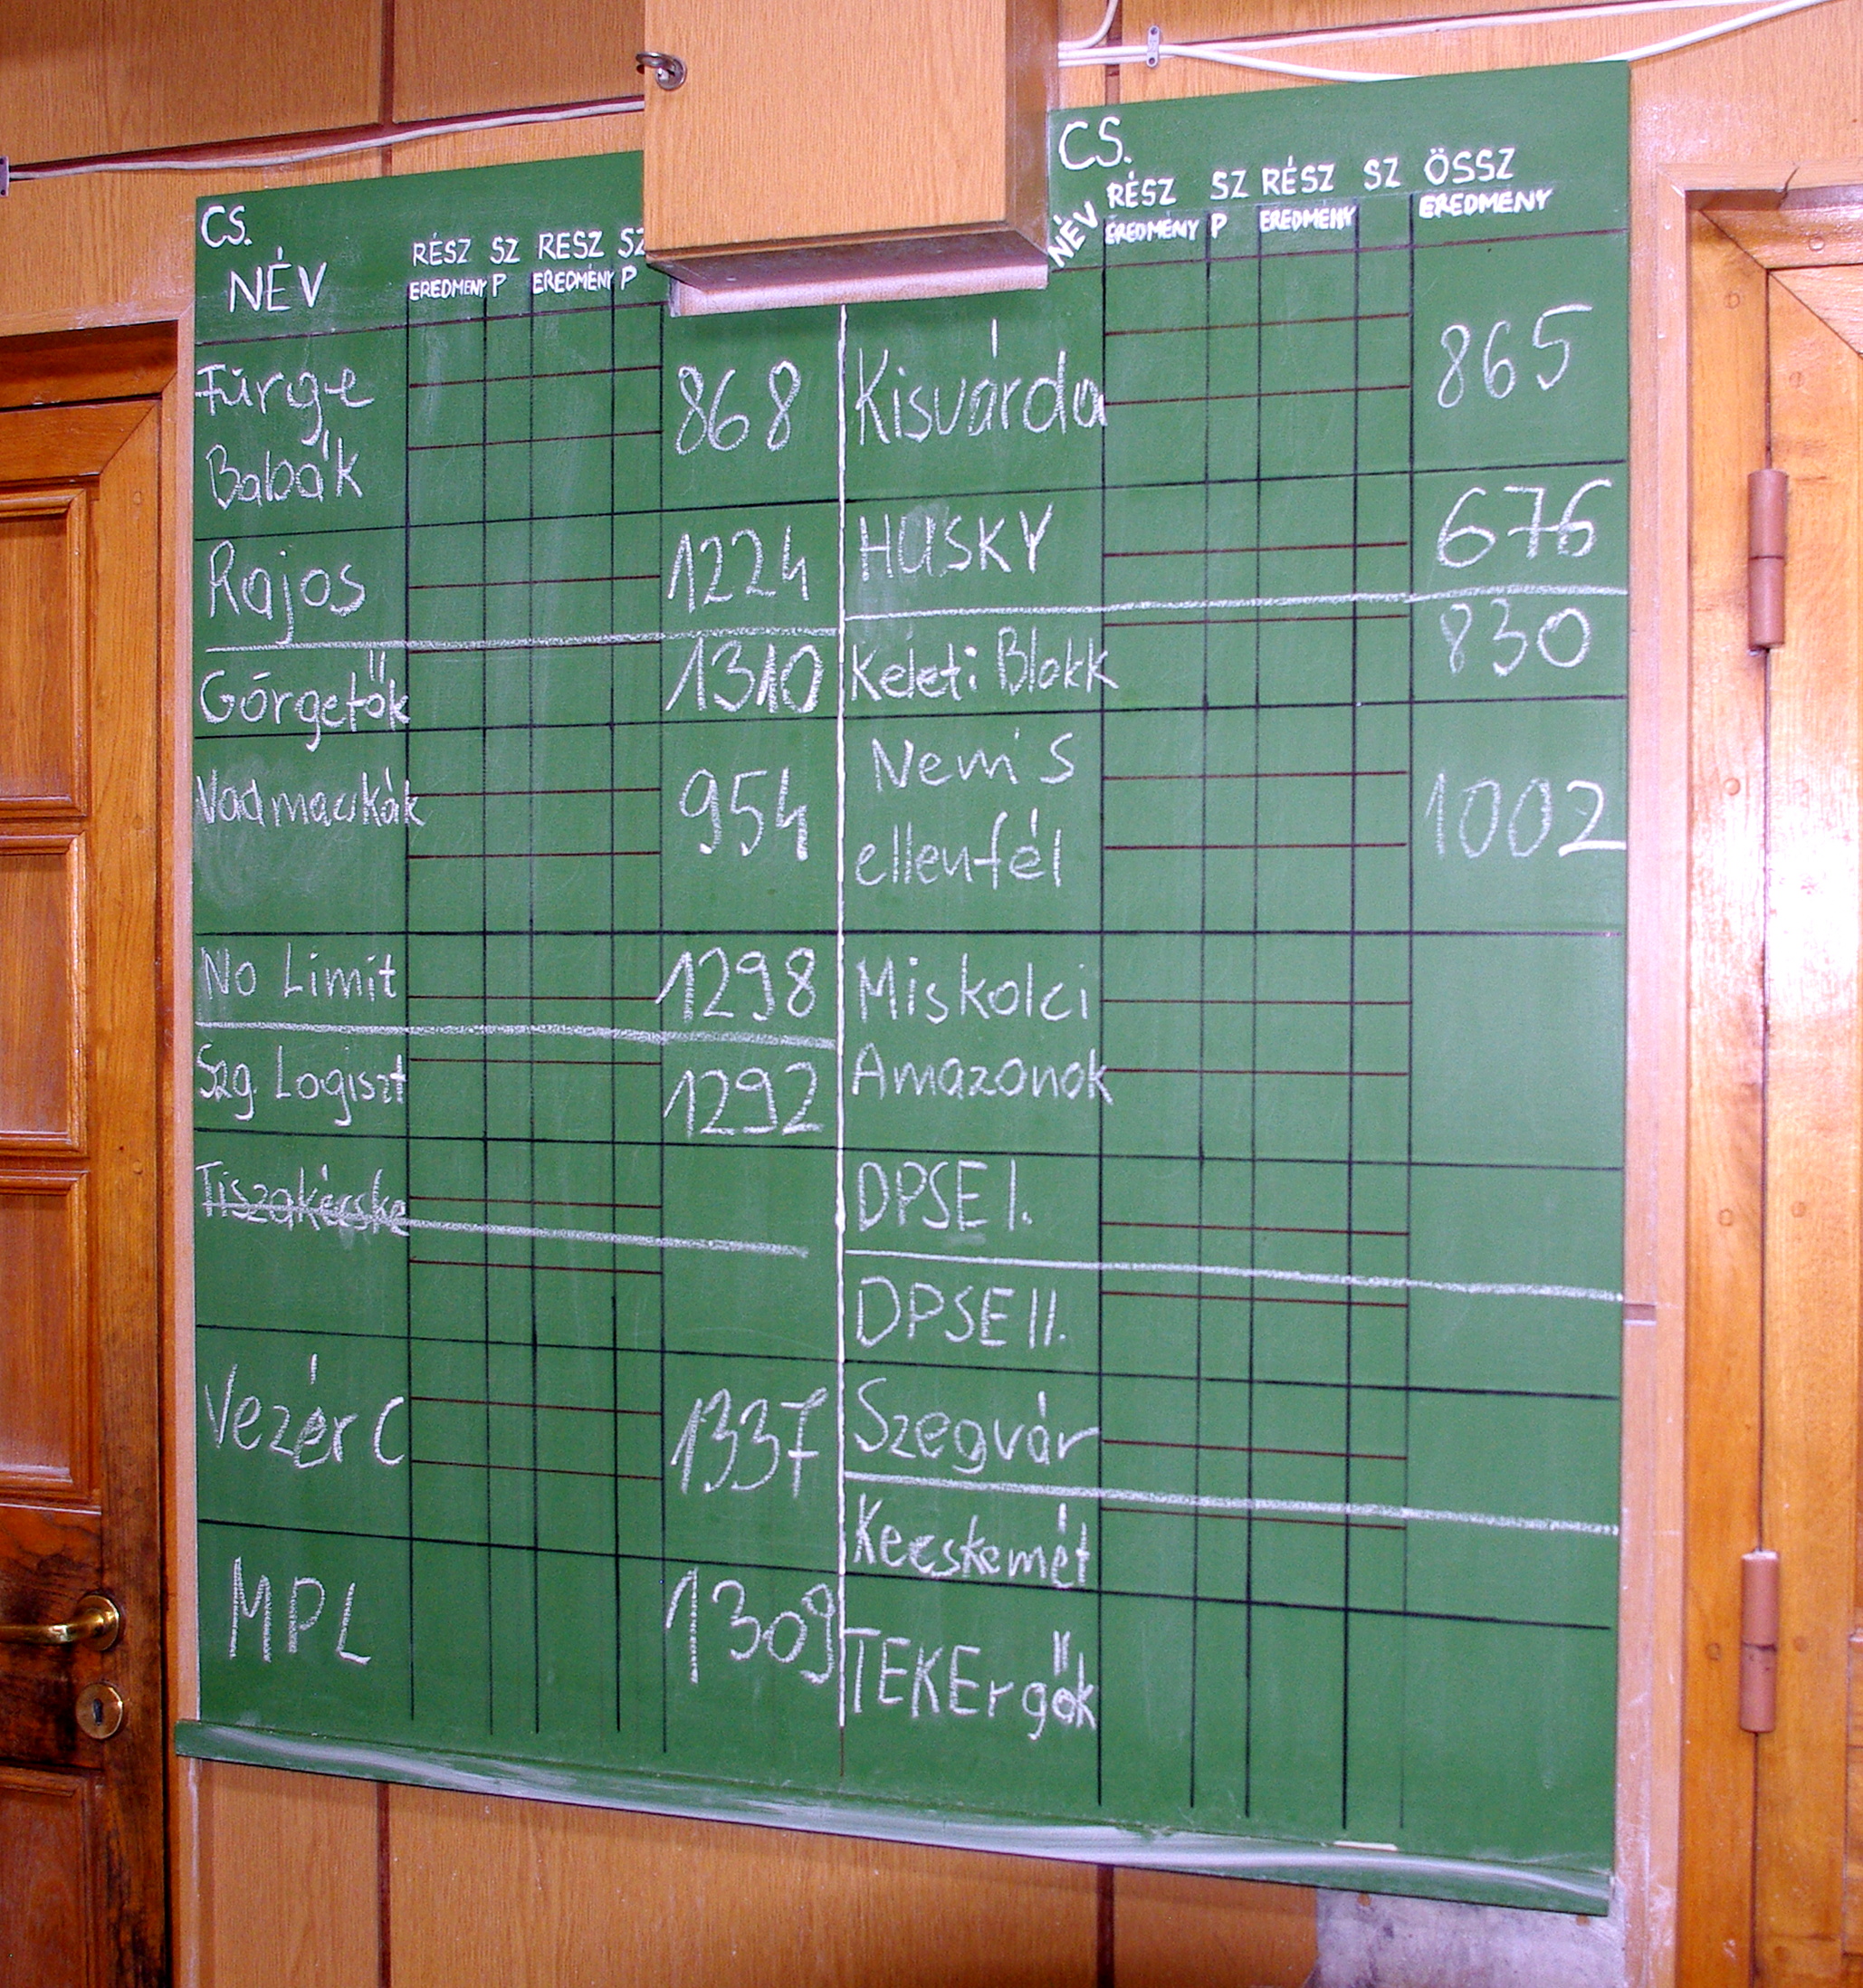 CS.
NÉV
RÉSZ SZ RESZ SZ
EREDMENY P EREDMÉNY P
Fürge
Babák
868
Rajos 1224
Görgetők 1310
Vadmackák 954
No Limit 1298
Szg. Logiszt 1292
Tiszakécske
Vezér C 1337
MPL 1309
CS.
NÉV
RÉSZ SZ RÉSZ SZ ÖSSZ
EREDMÉNY P EREDMENY EREDMENY
Kisvárda 865
HUSKY 676
Keleti Blokk 830
Nem's
ellenfél
1002
Miskolci
Amazonok
DPSE I.
DPSE II.
Szegvár
Kecskemét
TEKErgők